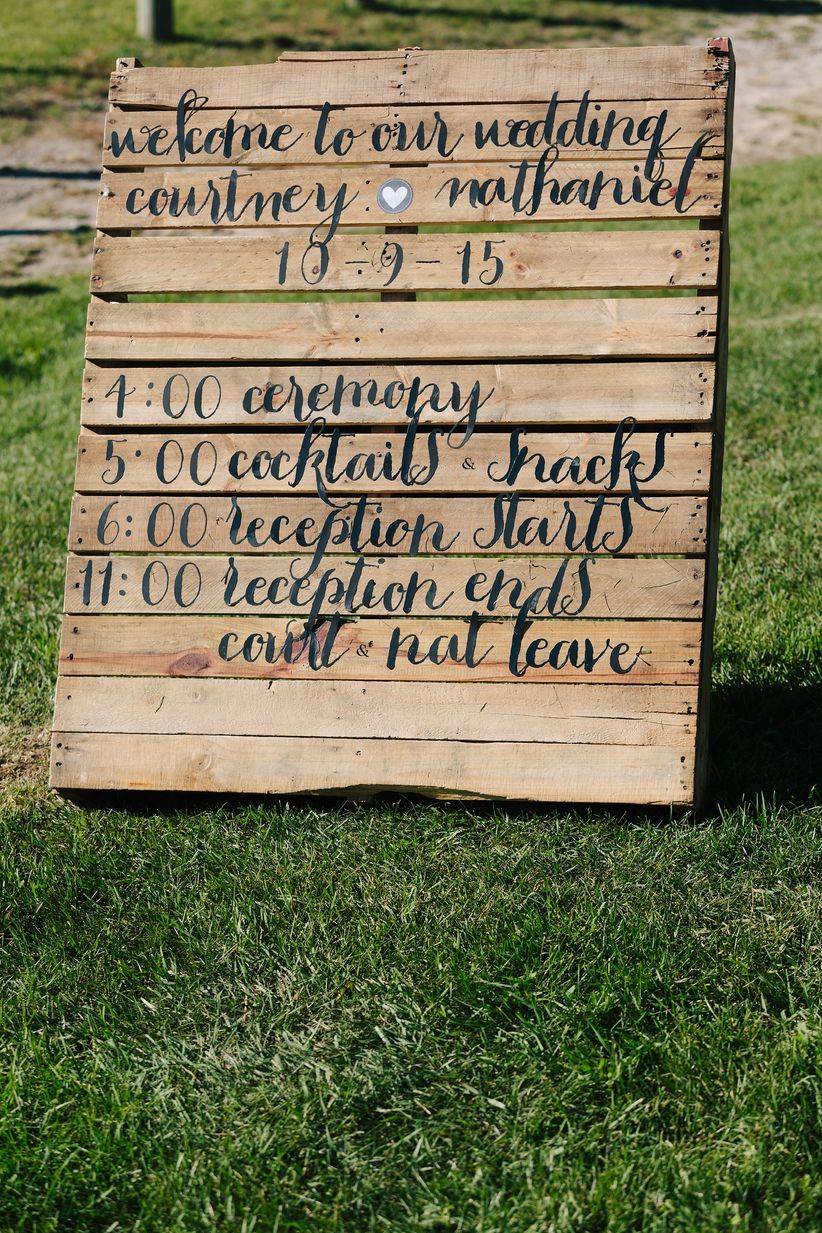 welcome to our wedding
courtney nathaniel
10-9-15
4:00 ceremony
5:00 cocktails & snacks
6:00 reception starts
11:00 reception ends
court & nat leave